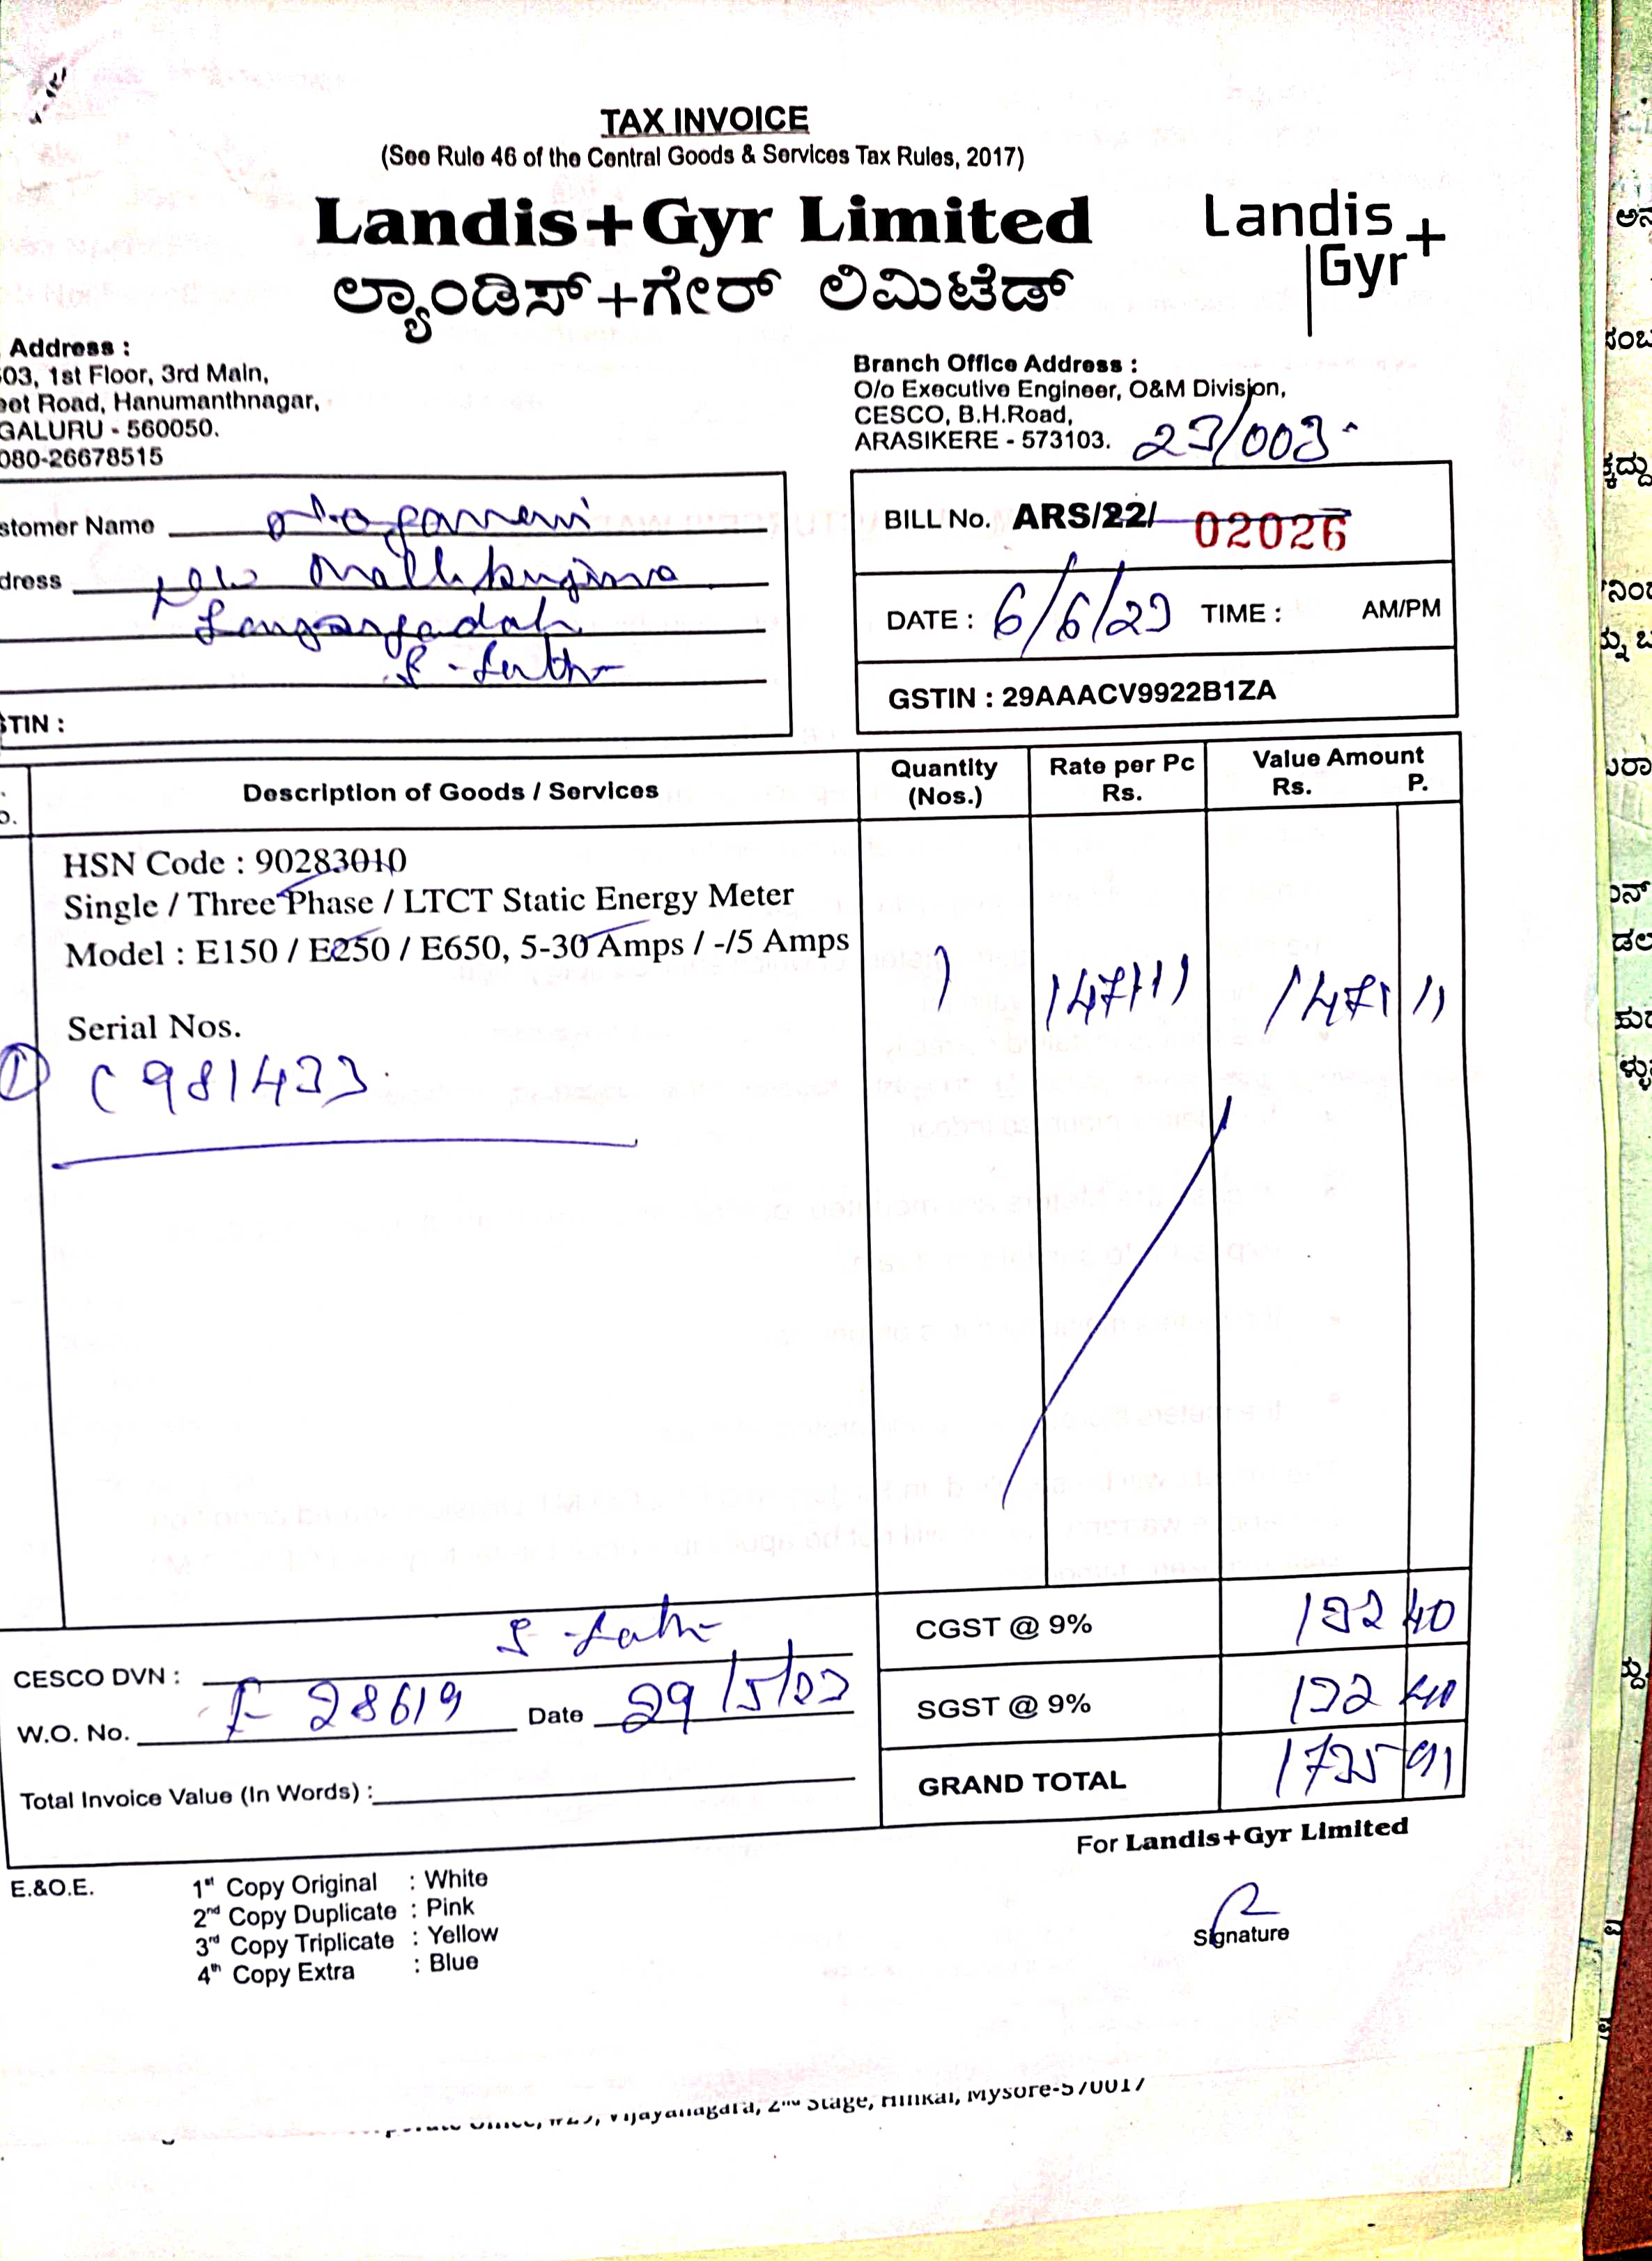 TAX INVOICE
(See Rule 46 of the Central Goods & Services Tax Rules, 2017)
Landis+Gyr Limited
ಲ್ಯಾಂಡಿಸ್+ಗೇರ್ ಲಿಮಿಟೆಡ್
Landis
Gyr+
Address :
1st Floor, 3rd Main,
Road, Hanumanthnagar,
GALURU - 560050.
080-26678515
Branch Office Address :
O/o Executive Engineer, O&M Division,
CESCO, B.H.Road,
ARASIKERE - 573103. 23/003
stomer Name
dress
TIN :
BILL No. ARS/22/ 02026
DATE : 6/6/23 TIME : AM/PM
GSTIN : 29AAACV9922B1ZA
Description of Goods / Services Quantity (Nos.) Rate per Pc Rs. Value Amount Rs. P.
HSN Code : 90283010
Single / Three Phase / LTCT Static Energy Meter
Model : E150 / E250 / E650, 5-30 Amps / -/5 Amps
1 1471 11 1471 11
Serial Nos.
① C981433
CGST @ 9% 132 40
SGST @ 9% 132 40
GRAND TOTAL 1735 91
CESCO DVN :
W.O. No. 28619 Date 29/5/23
Total Invoice Value (In Words) :
For Landis+Gyr Limited
Signature
E.&O.E.
1st Copy Original : White
2nd Copy Duplicate : Pink
3rd Copy Triplicate : Yellow
4th Copy Extra : Blue
Vijayanagara, 2nd Stage, Hinkal, Mysore-570017